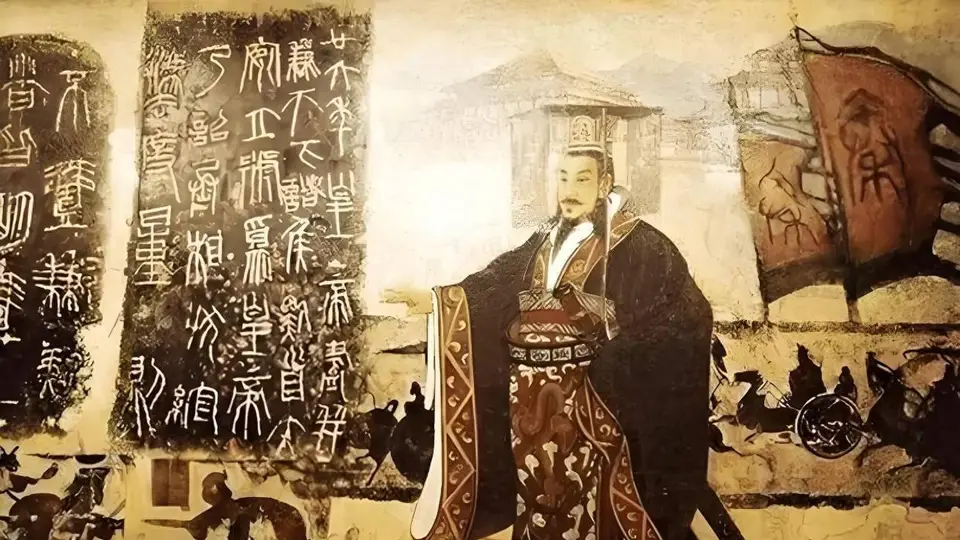 廿六年皇帝盡并
兼天下諸侯黔首大
安立號爲皇帝
乃詔丞相狀綰
灋度量則
不壹歉疑
者皆明壹
秦